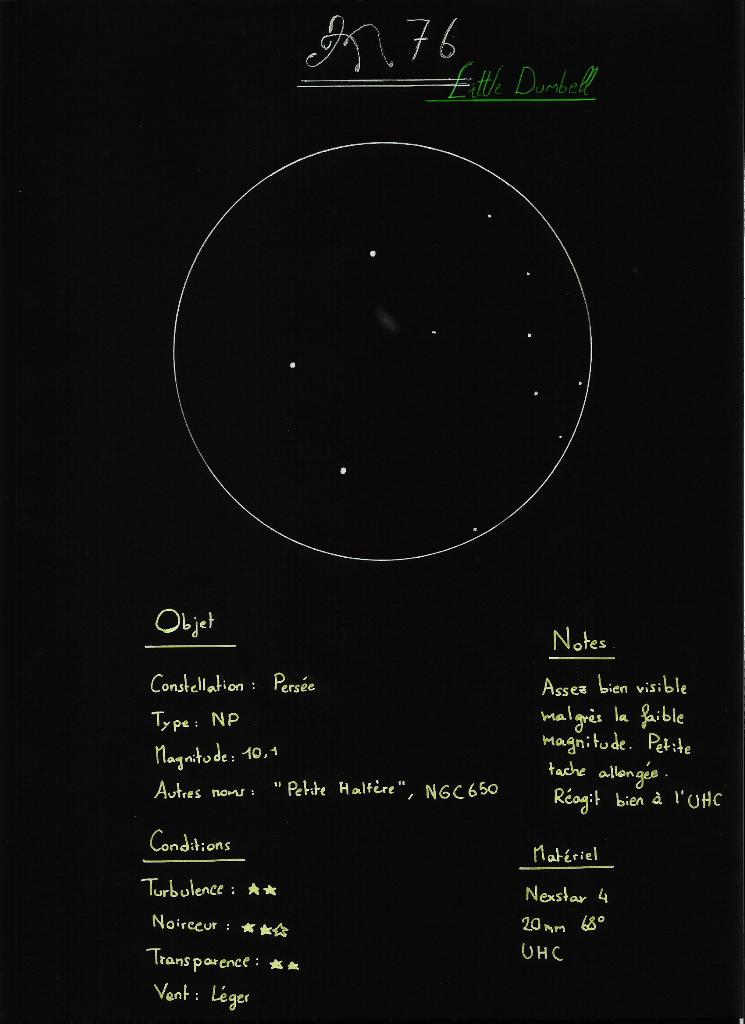 M 76
Little Dumbell
Objet
Constellation : Persée
Type : NP
Magnitude : 10,1
Autres noms : "Petite Haltère", NGC 650
Conditions
Turbulence : ★★
Noirceur : ★★☆
Transparence : ★★
Vent : Léger
Notes
Assez bien visible
malgrès la faible
magnitude. Petite
tache allongée.
Réagit bien à l'UHC
Matériel
Nexstar 4
20mm 68°
UHC